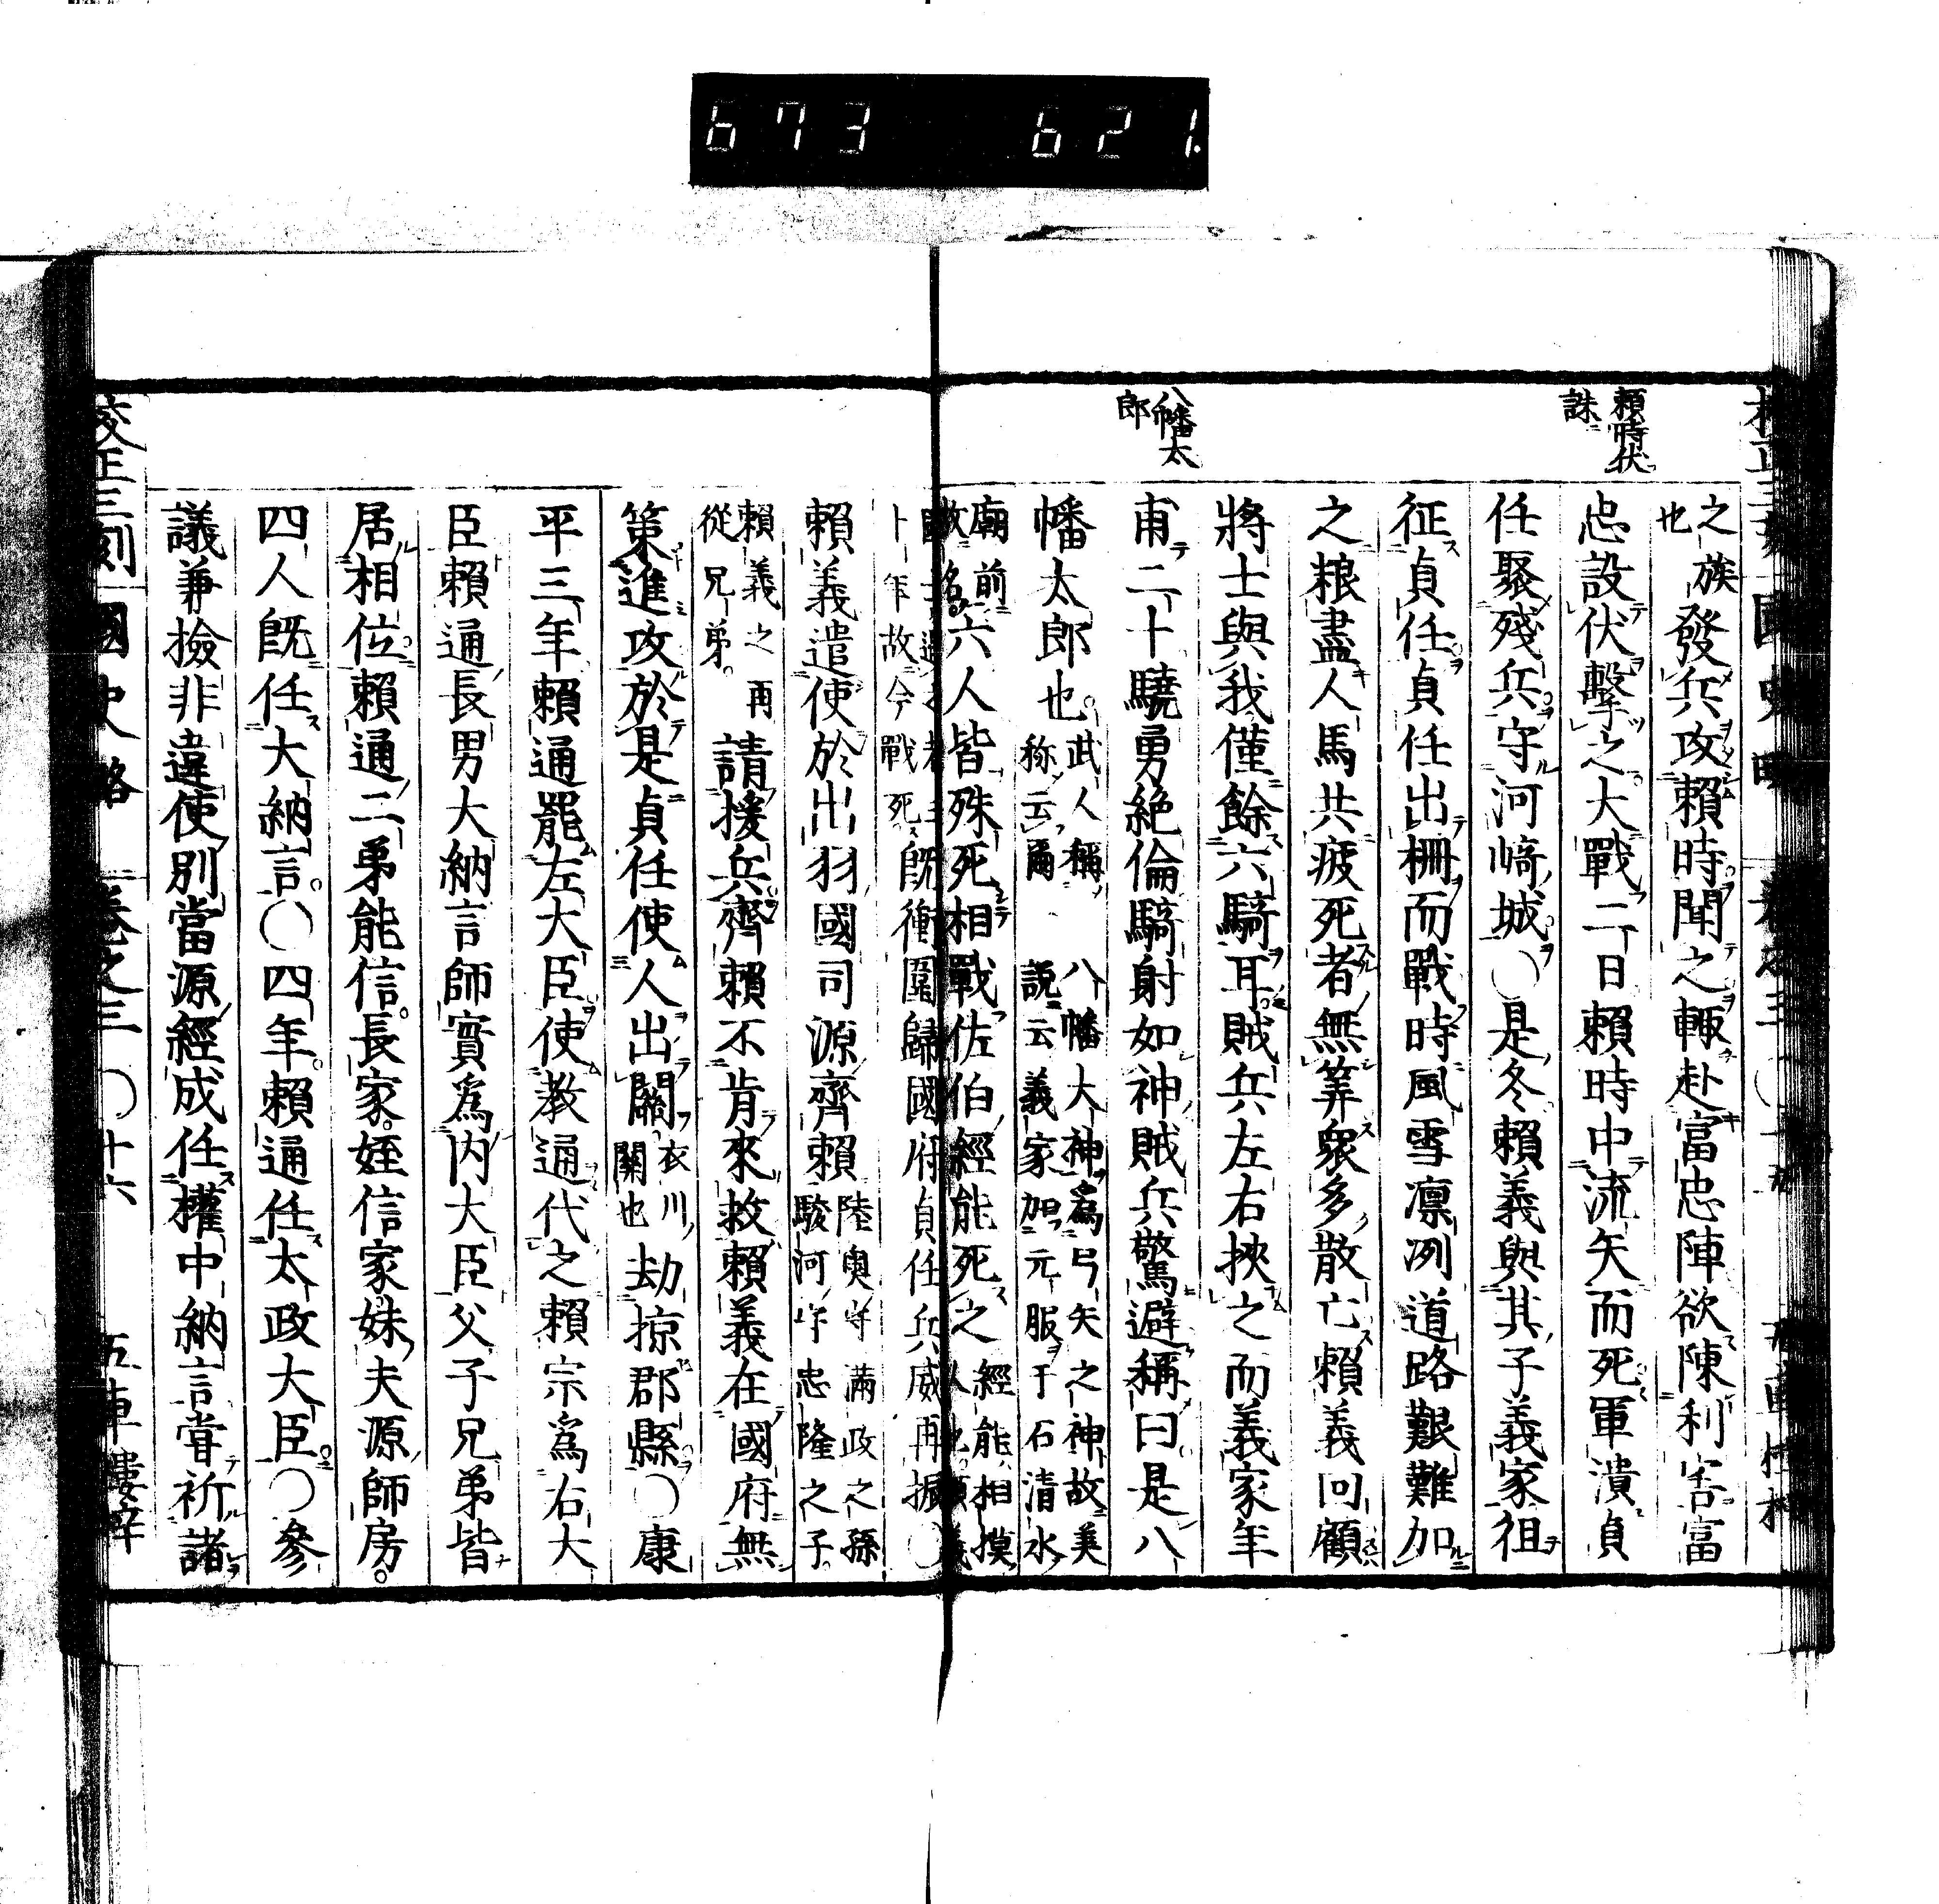 673 621
賴時伏
誅
之族
也
發兵攻賴時聞之輙赴富忠陣欲陳利害富
忠設伏擊之大戰二日賴時中流矢而死軍潰貞
任聚殘兵守河﨑城〇是冬賴義與其子義家徂
征貞任貞任出柵而戰時風雪凛冽道路艱難加
之粮盡人馬共疲死者無筭衆多散亡賴義回顧
將士與我僅餘六騎耳賊兵左右挾之而義家年
八幡太
郎
甫二十驍勇絶倫騎射如神賊兵驚避稱曰是八
幡太郎也
武人稱八幡大神爲弓矢之神故美
称云爾 説云義家加元服于石清水
廟前
故名
六人皆殊死相戰佐伯經能死之
經能相摸
人也
卜年故今戰死
既衝圍歸國府貞任兵威再振〇
賴義遣使於出羽國司源齊賴
陸奥守滿政之孫
駿河守忠隆之子
賴義之再
從兄弟
請援兵齊賴不肯來救賴義在國府無
策進攻於是貞任使人出關
衣川
關也
劫掠郡縣〇康
平三年賴通罷左大臣使敎通代之賴宗爲右大
臣賴通長男大納言師實爲内大臣父子兄弟皆
居相位賴通二弟能信長家姪信家妹夫源師房
四人既任大納言〇四年賴通任太政大臣〇參
議兼撿非違使別當源經成任權中納言嘗祈諸
校正三刻 國史略 卷之三 〇十六 五車樓梓